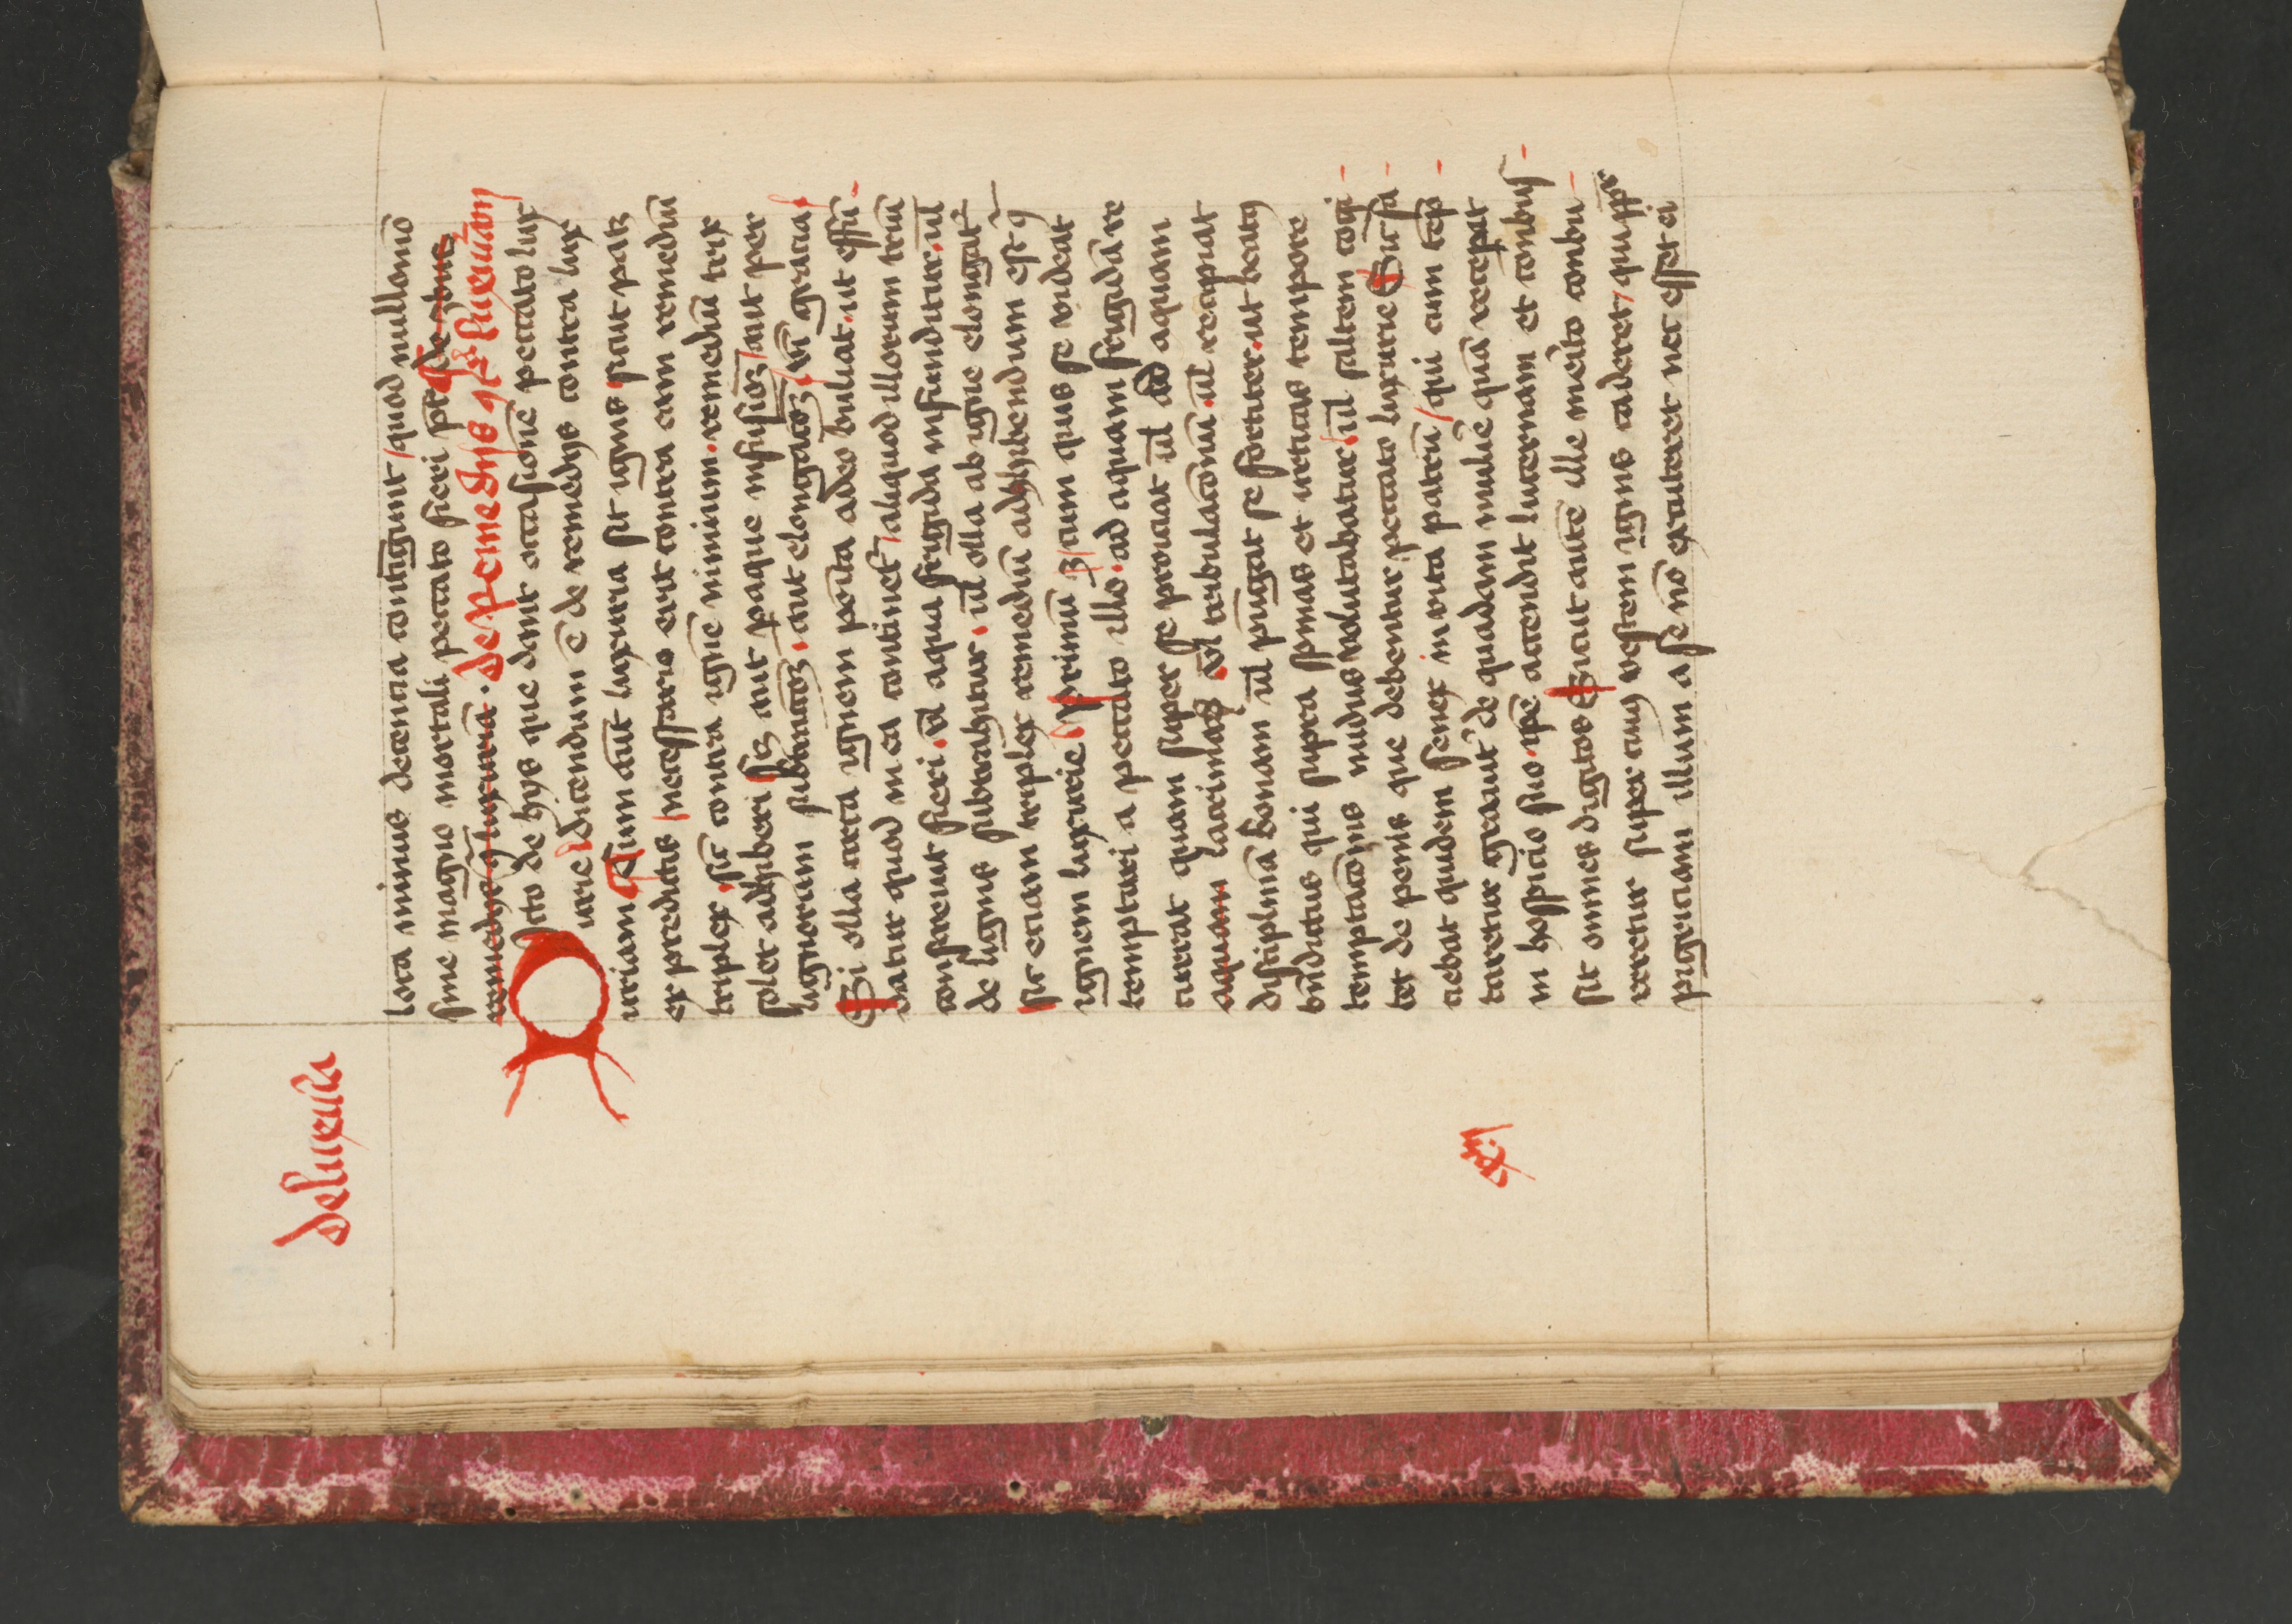 de luxuria
loca minus decencia contingunt / quod nullomō
sine magno mortali peccato fieri pōt de
remedijs ɔ̄ luxuriā · de Remedijs
Dicto de hijs que dant occasionē peccato lux
urie / dicendum ē de remedijs contra lux
uriam Cum aūt luxuria sit ignis sicut patꝫ
ex predictis / necessario erit contra eam remediū
triplex · sic̄ contra ignē nimium · remediū trix
solet adhiberi scꝫ aut p aque infusiōꝫ / aut per
lignorum subtractōꝫ · aut elongacōꝫ / vn̄ gracia
Si olla circa ignem pōita adeo buliat · ut effū
datur quod in ea continet̄ / aliquod illorum triū
consuevit fieri · vl̄ aqua frigida infunditur · ul̄
de lignis subtrahitur · ul̄ olla ab igne elongat᷑
sic eciam triplex remediū adhibendum est ɔ̄
ignem luxurie Primū ꝫ / cum quis se videat
temptari a peccato illo · ad aquam frigidā re
currat quam super se proiciat ul̄ ad aquam
aquam lacrimaꝝ vl̄ tribulacōnū · ul̄ recipiat
disciplinā bonam ul̄ pūgat se fortiter · ut beatꝰ
bn̄dictus qui supra spinas et urticas tempore
temptacōnis nudus volutabatur · ul̄ saltem cogi
tet de penis que debentur peccato luxurie Sic fa
ciebat quidem senex in vita patrū / qui cum tēp
taretur grauit᷑ de quadam muliē quā recepat
in hospicio suo · ip̄e accendit lucernam et conbuſ
sit omnes digitos Sicut autē ille mēito conbu
reretur super cuiꝰ vestem ignis caderet / qui p̄p̄t
pigriciam illum a se nō excuteret nec esset ei